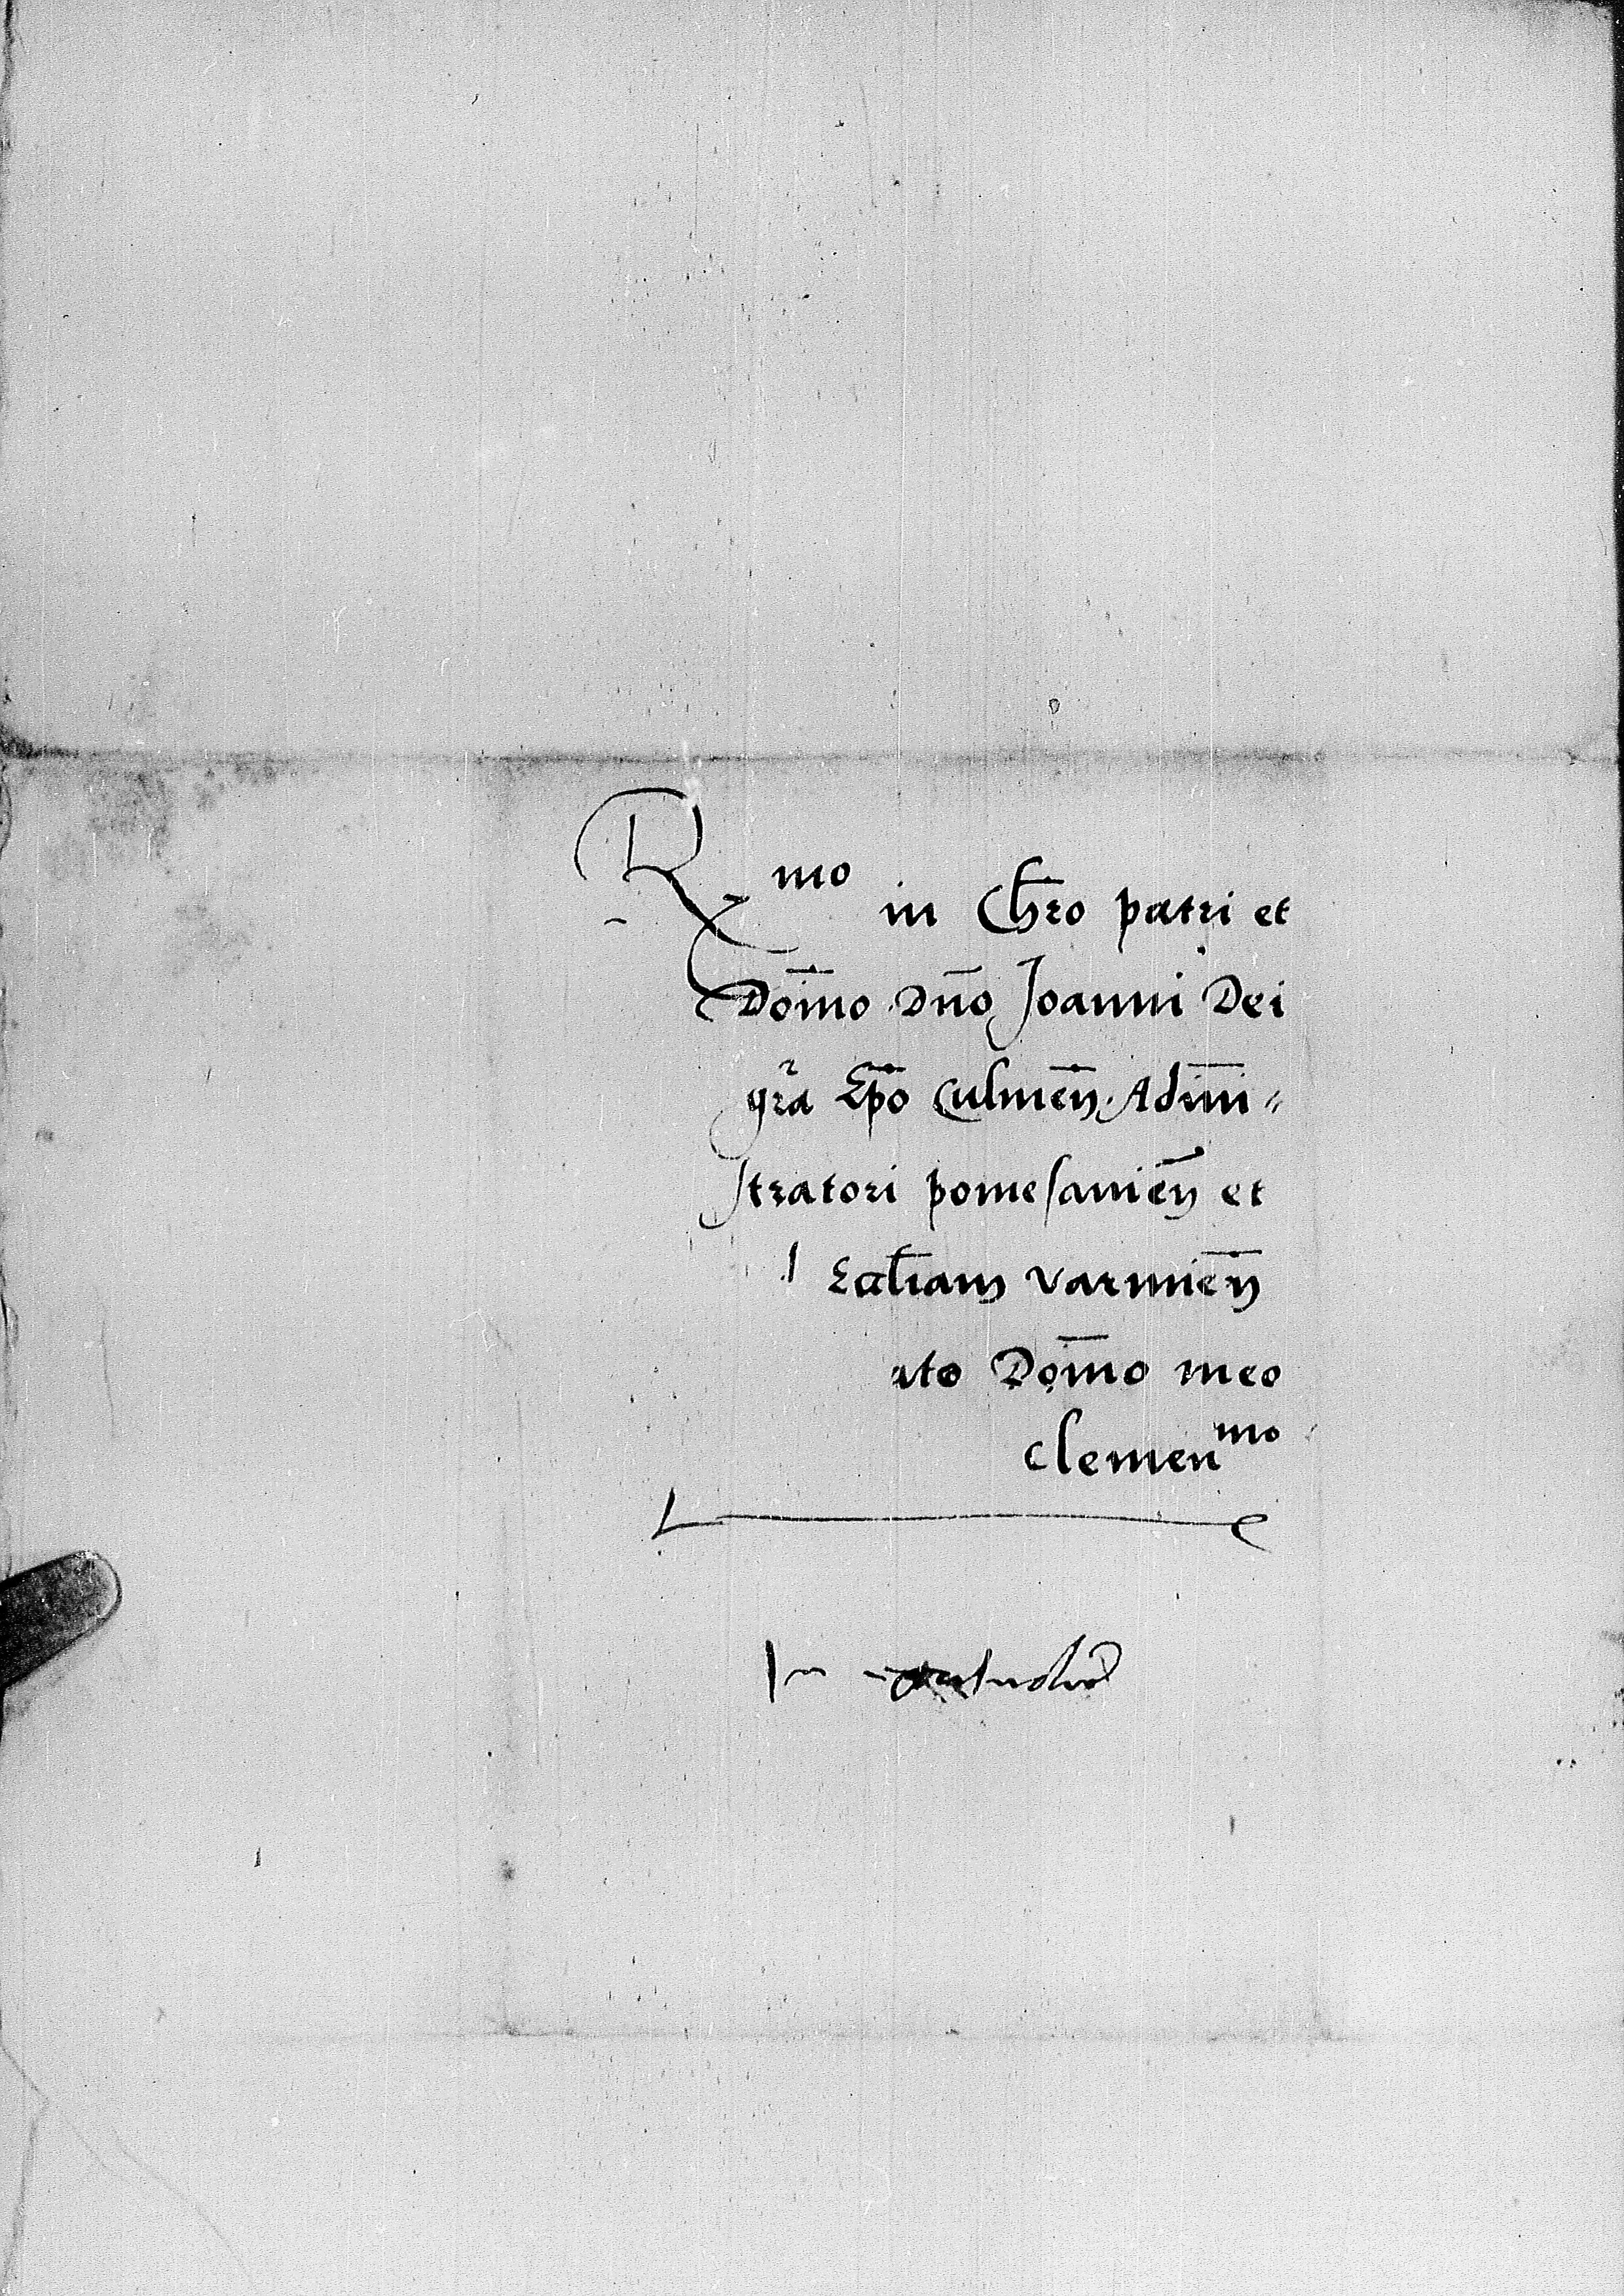 Rmo in Chro patri et
Domno Dno Joanni Dei
gra Epo Culmen. Admi„
stratori pomesanien et
Eccliam Varmien
ato Domno meo
clemenmo
In